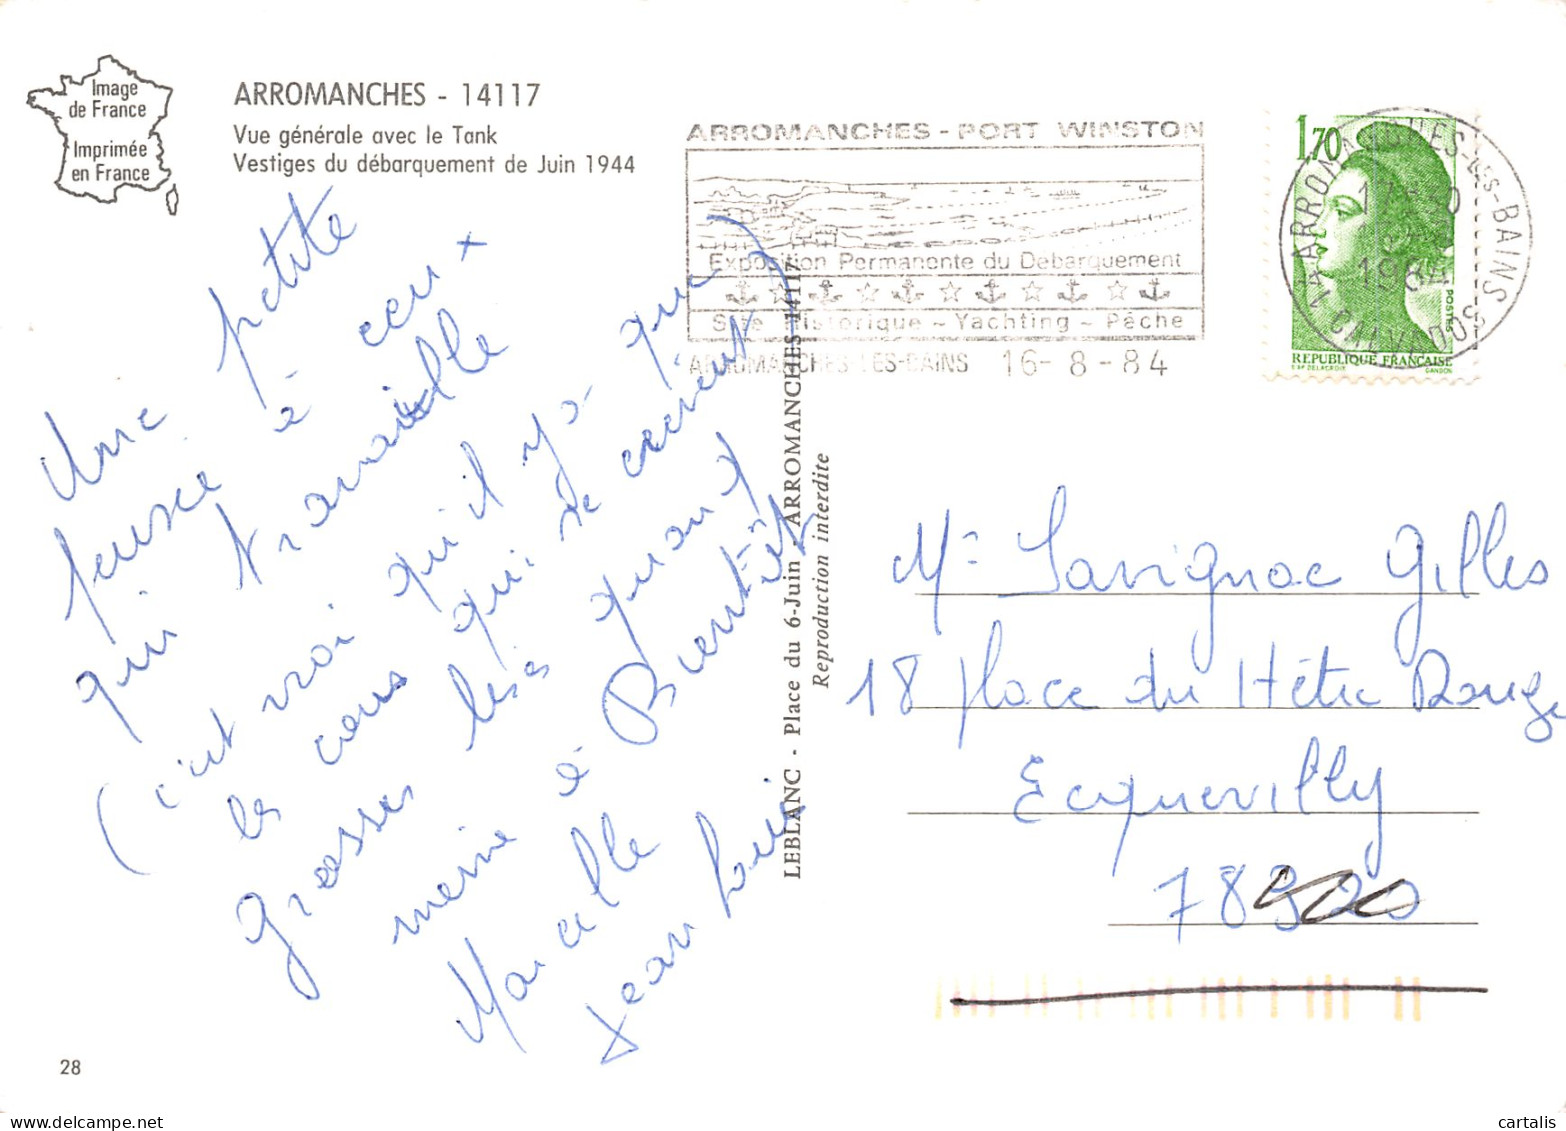 Image
de France
Imprimée
en France
ARROMANCHES - 14117
Vue générale avec le Tank
Vestiges du débarquement de Juin 1944
ARROMANCHES - PORT WINSTON
Exposition Permanente du Débarquement
Site Historique - Yachting - Pêche
ARROMANCHES-LES-BAINS 16-8-84
1,70
POSTES
REPUBLIQUE FRANÇAISE
D'AP. DELACROIX GANDON
14 ARROMANCHES-LES-BAINS
1984
CALVADOS
Une petite
pensée à ceux
qui travaille
(c'est vrai qu'il y a que
les cons qui se crèvent)
grosses bises quand
même à Bientôt
Marcelle
Jean Louis
LEBLANC - Place du 6-Juin - ARROMANCHES-14117
Reproduction interdite
Mr Savignac Gilles
18 place du Hêtre Rouge
Ecquevilly
78920
28
cartalis